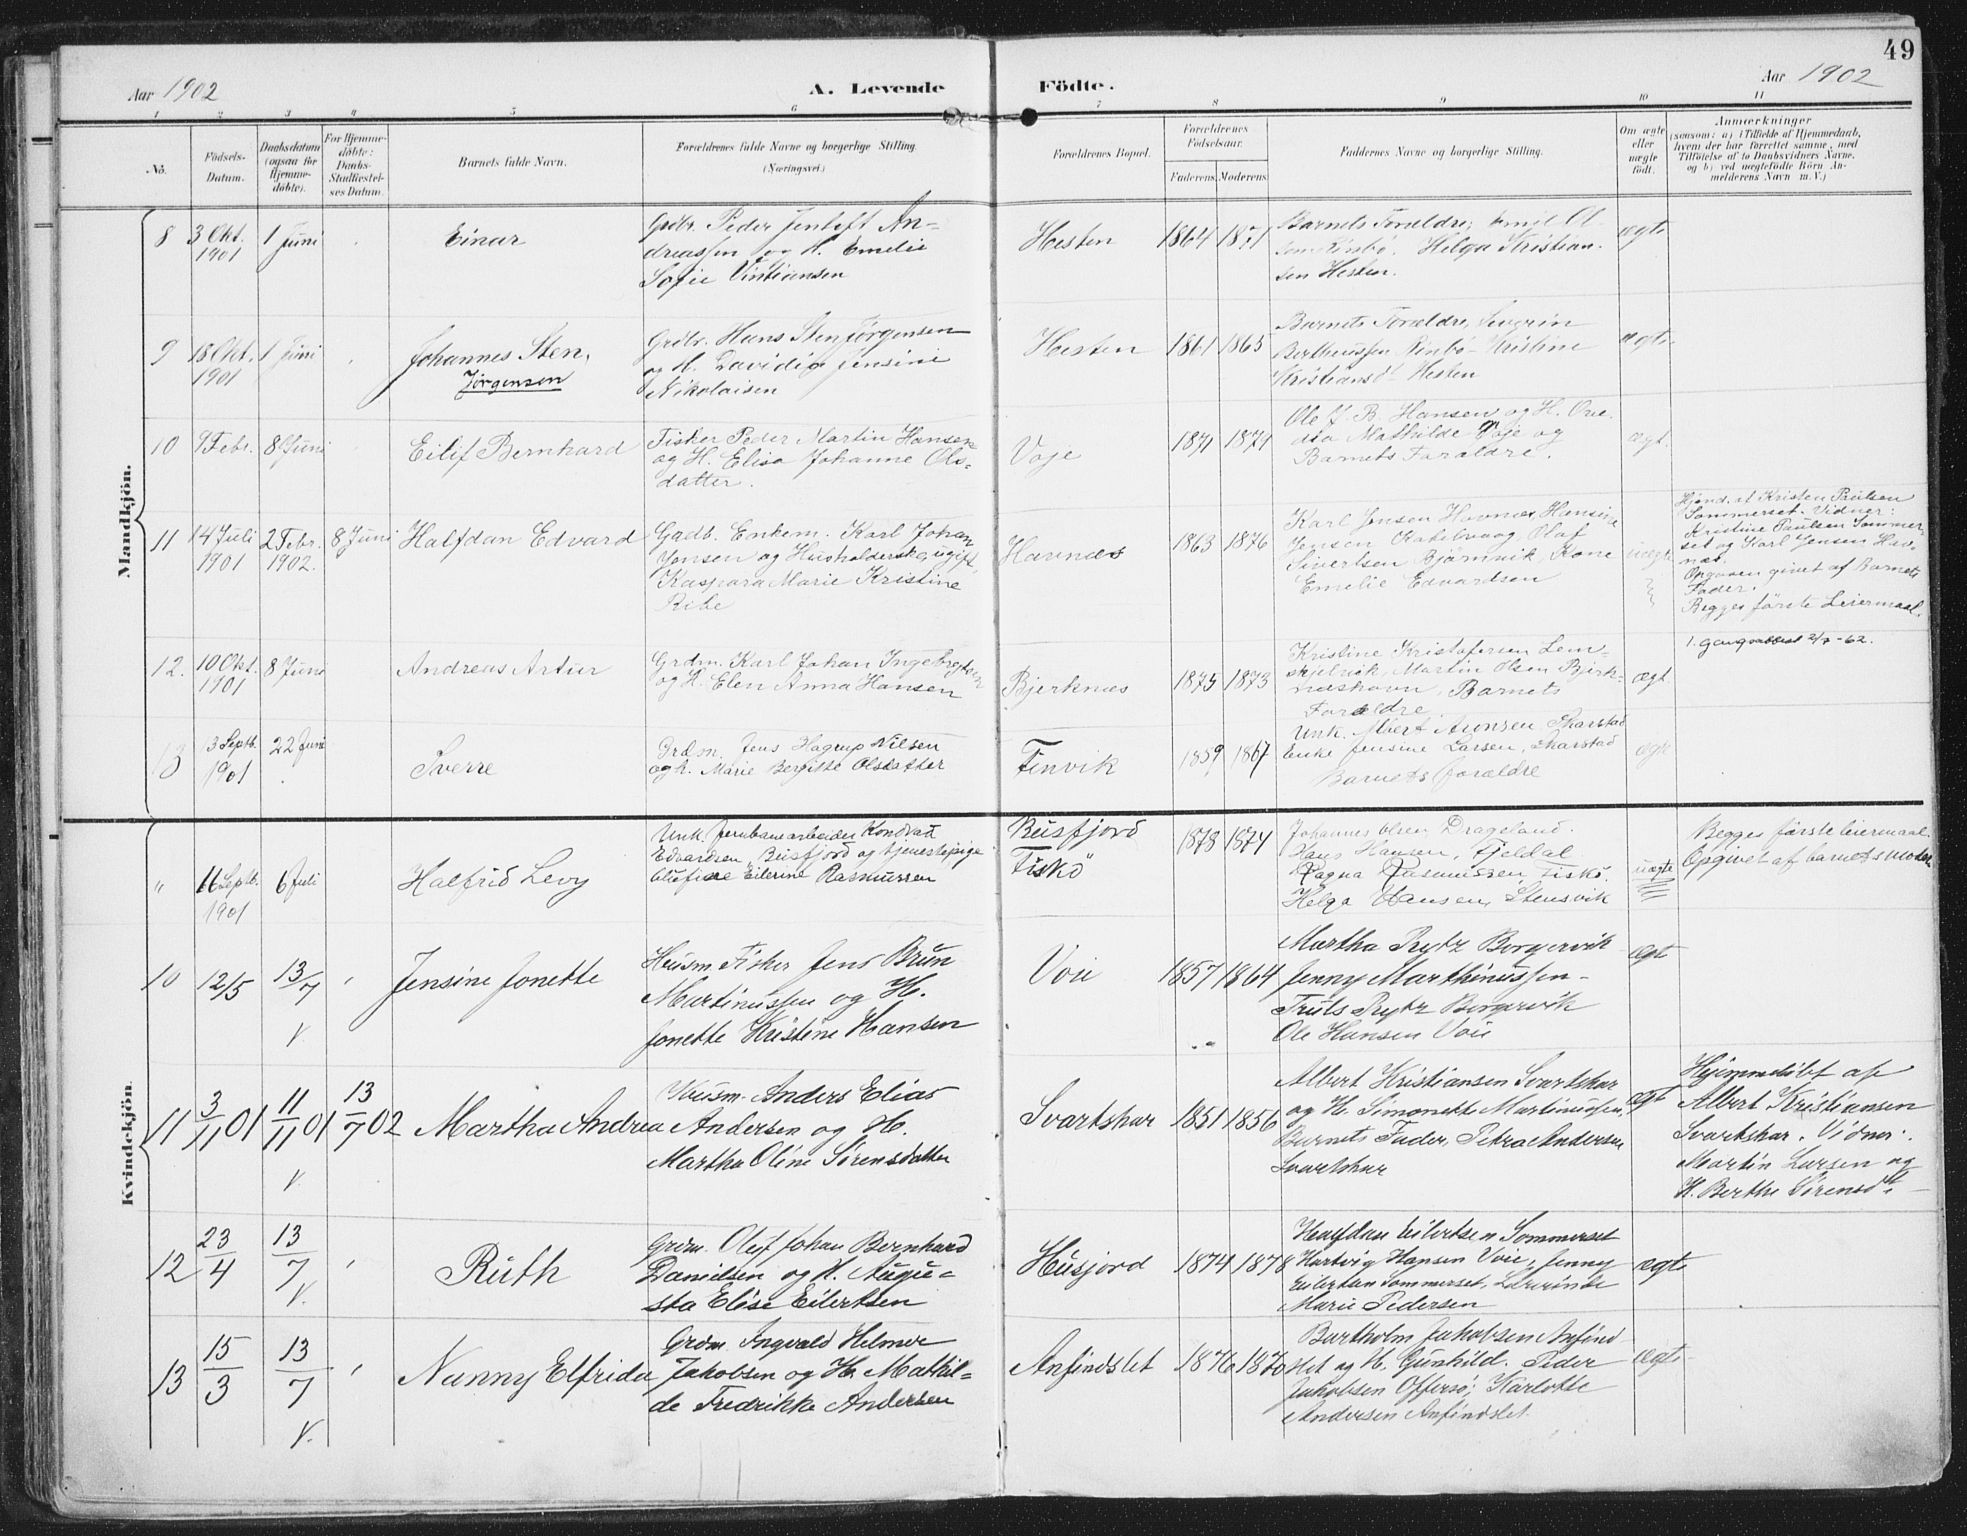 49
Aar 1902
A. Levende
Födte.
Aar 1902
1 2 3 4 5 6 7 8 9 10 11
No.
Födsels-
Datum.
Daabsdatum
(ogsaa for
Hjemme-
döbte).
For Hjemme-
döbte:
Daabs-
Stadfæstel-
ses Datum.
Barnets fulde Navn.
Forældrenes fulde Navne og borgerlige Stilling.
(Næringsvei.)
Forældrenes Bopæl.
Forældrenes
Födselsaar.
Faderens. Moderens.
Faddernes Navne og borgerlige Stilling.
Om ægte
eller
uægte
födt.
Anmærkninger
(saasom: a) i Tilfælde af Hjemmedaab,
hvem der har forrettet samme, med
Tilföielse af to Daabsvidners Navne,
og b) ved uægtefödte Börn An-
melderens Navn m. V.)
Mandkjön.
8
3 Okt.
1901
1 Juni
Einar
Grdbr. Peder Jentoft An-
dreassen og H. Emelie
Sofie Kristiansen
Hesten
1864 1871
Barnets Forældre, Emil Ol-
sen Rinbö. Helga Kristian-
sen Hesten.
ægte
9
18 Okt.
1901
1 Juni
Johannes Sten,
Jørgensen
Grdbr. Hans Sten Jørgensen
og H. Davidia Jensine
Nikolaisen
Hesten
1861 1865
Barnets Forældre, Severin
Bertheussen Rinbö- Kristine
Kristiansd- Hesten
ægte
10
9 Febr.
8 Juni
Eilif Bernhard
Fisker Peder Martin Hansen
og H. Elisa Johanne Ols-
datter.
Voje
1871 1874
Ole J. B. Hansen og H. Ove-
dia Mathilde Voje og
Barnets Forældre.
ægt.
11
14 Juli
1901
2 Febr.
1902.
8 Juni
Halfdan Edvard
Gadb. Enkem. Karl Johan
Jensen og Husholderske, ugift,
Kaspara Marie Kristine
Ribe
Havnæs
1863 1876
Karl Jensen Havnæs, Hansine
Jensen Kabelvaag Olaf
Sivertsen Bjørnvik, Kone
Emelie Edvardsen
uægte
Hjemd. af Kristen Paulsen
Sommerset. Vidner:
Kristine Paulsen Sommer-
set og Karl Jensen Hav-
næs.
Opgaven givet af Barnets
Fader.
Begges første Leiermaal.
1. gangsattest 2/7-62.
12.
10 Okt.
1901
8 Juni
Andreas Artur
Grdm. Karl Johan Ingebrigtsen
og H. Elen Anna Hansen
Bjerknæs
1875 1873
Kristine Kristofersen Lem-
skjelvik, Martin Olsen Bjerk-
næshavn, Barnets
Forældre
ægt.
13
3 Septb.
1901
22 Juni
Sverre
Grdm. Jens Hagrup Nilsen
og h. Marie Bergitte Olsdatter
Finvik
1859 1867
Unk. Albert Aronsen, Skarstad
Enke Jensine Larsen, Skarstad
Barnets forældre
ægte
Kvindekjön.
"
16 Septb.
1901
6 Juli
Halfrid Levy
Unk. Jernbanearbeider Kondrat
Edvardsen, Busfjord og tjenestepige
Olufine Eilerine Rasmussen
Busfjord
Fiskö
1878 1874
Johannes Olsen Drageland.
Hans Hansen, Fjeldal
Ragna Rasmussen, Fiskö.
Helga Hansen, Stensvik
uægte
Begges første leiermaal.
Opgivet af barnets moder.
10
12/5
13/7
V.
Jensine Jonette
Husm. Fisker Jens Brun
Martinussen og H.
Jonette Kristine Hansen
Voie
1857 1864
Martha Rytz Borgervik
Jenny Marthinussen-
Truls Rytz Borgervik
Ole Hansen Voie
ægt
11
3/11 01
11/11 01
V.
13/7 02
Martha Andrea
Husm. Anders Elias
Andersen og H.
Martha Oline Sørensdatter
Svartskar
1851 1856
Albert Kristiansen Svartskar
og H. Simonette Martinussen,
Barnets Fader, Petra Andersen
Svartskar
ægt
Hjemmedøbt af
Albert Kristiansen
Svartskar. Vidner:
Martin Larsen og
H. Berthe Sørensdt.
12
23/4
13/7
V.
Ruth
Grdm. Olaf Johan Bernhard
Danielsen og H. Augu-
sta Elise Eilertsen
Husjord
1874 1878
Halfdan Eilertsen Sommerset
Hartvig Hansen Voie, Jenny
Eilertsen Sommerset, Lovrinde
Marie Pedersen
ægte
13
15/3
13/7
V.
Nanny Elfrida
Grdm. Ingvald Helmer
Jakobsen og H. Mathil-
de Fredrikke Andersen
Anfindslet
1876 1870
Bartholm Jakobsen Anfind-
slet og H. Gunhild. Peder
Jakobsen Offersö, Karlotte
Andersen Anfindslet.
ægte